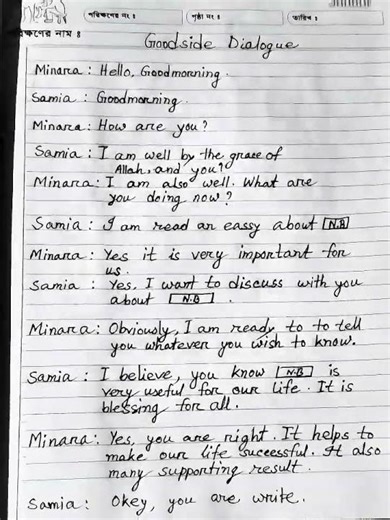 পরিক্ষণের নং ঃ
পৃষ্ঠা নং ঃ
তারিখ ঃ
রিক্ষণের নাম ঃ
Goodside Dialogue
Minara : Hello, Goodmorning.
Samia : Goodmorning.
Minara : How are you?
Samia : I am well by the grace of
Allah, and you?
Minara : I am also well. What are
you doing now?
Samia : I am read an eassy about N.B
Minara : Yes it is very important for
us.
Samia : Yes, I want to discuss with you
about N.B.
Minara : Obviously, I am ready to to tell
you whatever you wish to know.
Samia : I believe, you know N.B is
very useful for our life. It is
blessing for all.
Minara : Yes, you are right. It helps to
make our life successful. It also
many supporting result.
Samia : Okey, you are write.